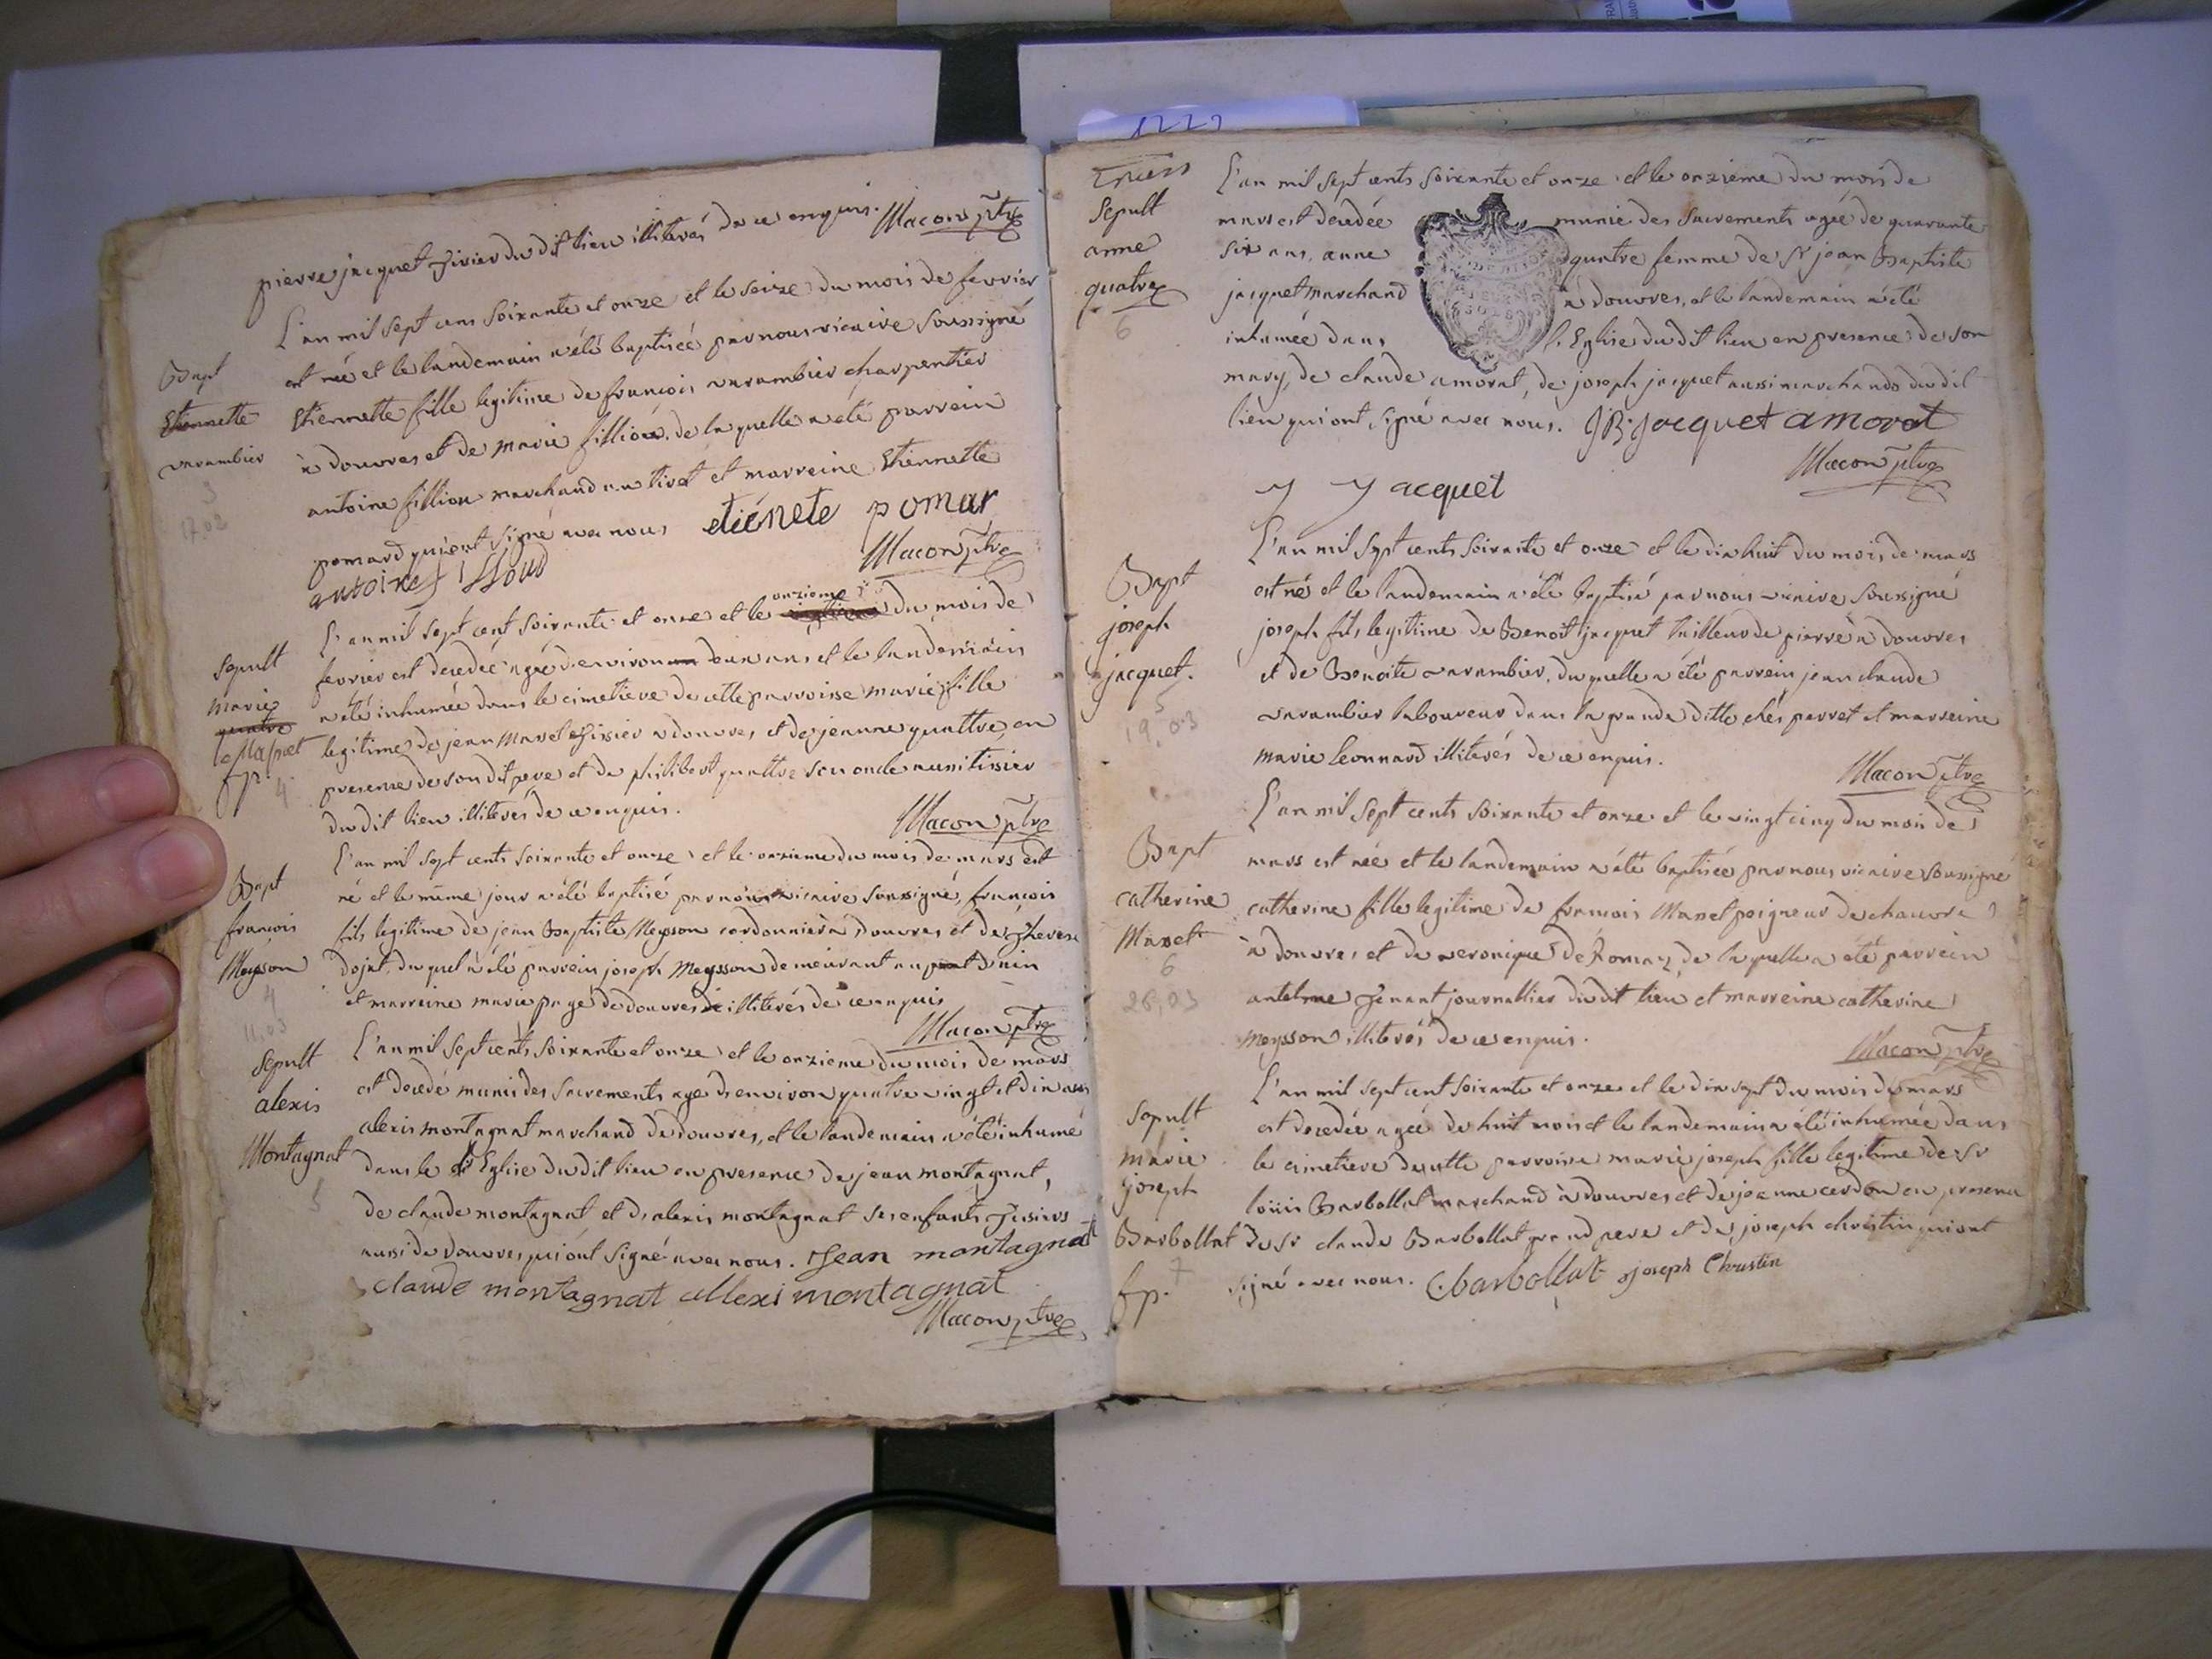 pierre jacquet tisier du dit lieu illiterés de ce enquis. Macon ptre
L'an mil sept cens soixante et onze et le seize du mois de fevrier
est née et le landemain a été baptisée par nous vicaire soussigné
Bapt
Etiennette
varambier
Etiennette fille legitime de francois varambier charpentier
à douvres et de marie filliou, de laquelle a été parrein
antoine filliou marchand au tiret et marreine Etiennette
pomard qui ont signé avec nous etiénete pomar
antoine filloud
Macon ptre
3
17.02
L'an mil sept cent soixante et onze et le onzieme du mois de
Sepult
marie
quatre
Manet
fp.
4
fevrier est decedée agée d'environ deux ans et le landemain
a été inhumée dans le cimetiere de cette parroisse marie fille
legitime de jean Manet tissier a douvres, et de jeanne quattre, en
presence de son dit pere et de philibert quattre son oncle aussi tissier
du dit lieu illiterés de ce enquis.
Macon ptre
L'an mil sept cents soixante et onze et le onzieme du mois de mars est
Bapt
francois
Meysson
4
11.03
né et le même jour a été baptisé par nous vicaire soussigné, francois
fils legitime de jean Baptiste Meysson cordonnier à douvres et de therese
dojat, du quel a été parrein joseph Meysson demeurant au pont d'ain
et marreine marie pagé de douvres illiterés de ce enquis
Macon ptre
L'an mil sept cents soixante et onze et le onzieme du mois de mars
Sepult
alexis
Montagnat
5
est decedé muni des sacrements agé d'environ quatre vingt et dix ans
alexis montagnat marchand de douvres, et le landemain a été inhumé
dans le Eglise du dit lieu en presence de jean montagnat,
de claude montagnat et d'alexis montagnat ses enfants tissiers
aussi de douvres qui ont signé avec nous. Jean montagnat
claude montagnat allexi montagnat
Macon ptre
1771
Sepult
anne
quatre
6
L'an mil sept cents soixante et onze et le onzieme du mois de
mars est decedée munie des sacrements agée de quarante
six ans, anne quatre femme de Sr jean Baptiste
jacquet marchand à douvres, et le landemain a été
inhumée dans l'Eglise du dit lieu en presence de son
mary, de claude amorat, de joseph jacquet aussi marchands du dit
lieu qui ont signé avec nous. JB. jacquet amorat
Macon ptre
J Jacquet
L'an mil sept cents soixante et onze et le dix huit du mois de mars
Bapt
joseph
jacquet.
5
19,03
est né et le landemain a été baptisé par nous vicaire soussigné
joseph fils legitime de Benoit jacquet tailleur de pierre à douvres
et de Benoite varambier, du quelle a été parrein jean claude
varambier laboureur dans la grande ditte chés perret et marreine
marie leonnard illiterés de ce enquis.
Macon ptre
L'an mil sept cents soixante et onze et le vingt cinq du mois de
Bapt
catherine
Manet
6
26,03
mars est née et le landemain a été baptisée par nous vicaire soussigné
catherine fille legitime de francois Manet peigneur de chanvre
à douvres et de veronique de Romaz, de laquelle a été parrein
antelme tenant journallier du dit lieu et marreine catherine
meysson illiterés de ce enquis.
Macon ptre
L'an mil sept cent soixante et onze et le dix sept du mois de mars
Sepult
marie
joseph
Barbollat
7
fp.
est decedée agée de huit mois et le landemain a été inhumée dans
le cimetiere de cette parroisse marie joseph fille legitime de Sr
loüis Barbollat marchand à douvres et de jeanne cerdon en presence
de Sr claude Barbollat grand pere et de joseph christin qui ont
signé avec nous. C. barbollat joseph Christin